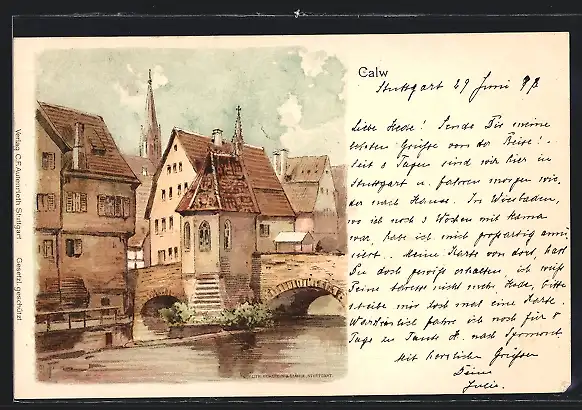 Calw
Stuttgart 29 Juni 98
Liebe Hede! Sende Dir meine
besten Grüße von der Reise!
Seit 3 Tagen sind wir hier in
Stuttgart u. fahren morgen wie-
der nach Hause. In Wiesbaden,
wo ich noch 3 Wochen mit Mama
war, habe ich mich großartig amü-
siert. Meine Karte von dort, hast
Du doch gewiß erhalten, ich weiß
Deine Adresse nicht mehr. Hede, bitte
schreibe mir doch mal eine Karte.
Wahrscheinlich fahre ich noch für 8
Tage zu Tante A. nach Pyrmont.
Mit herzlichen Grüßen
Deine
Lucie.
Verlag C.F. Autenrieth Stuttgart
Gesetzl. geschützt
STUTTGART.